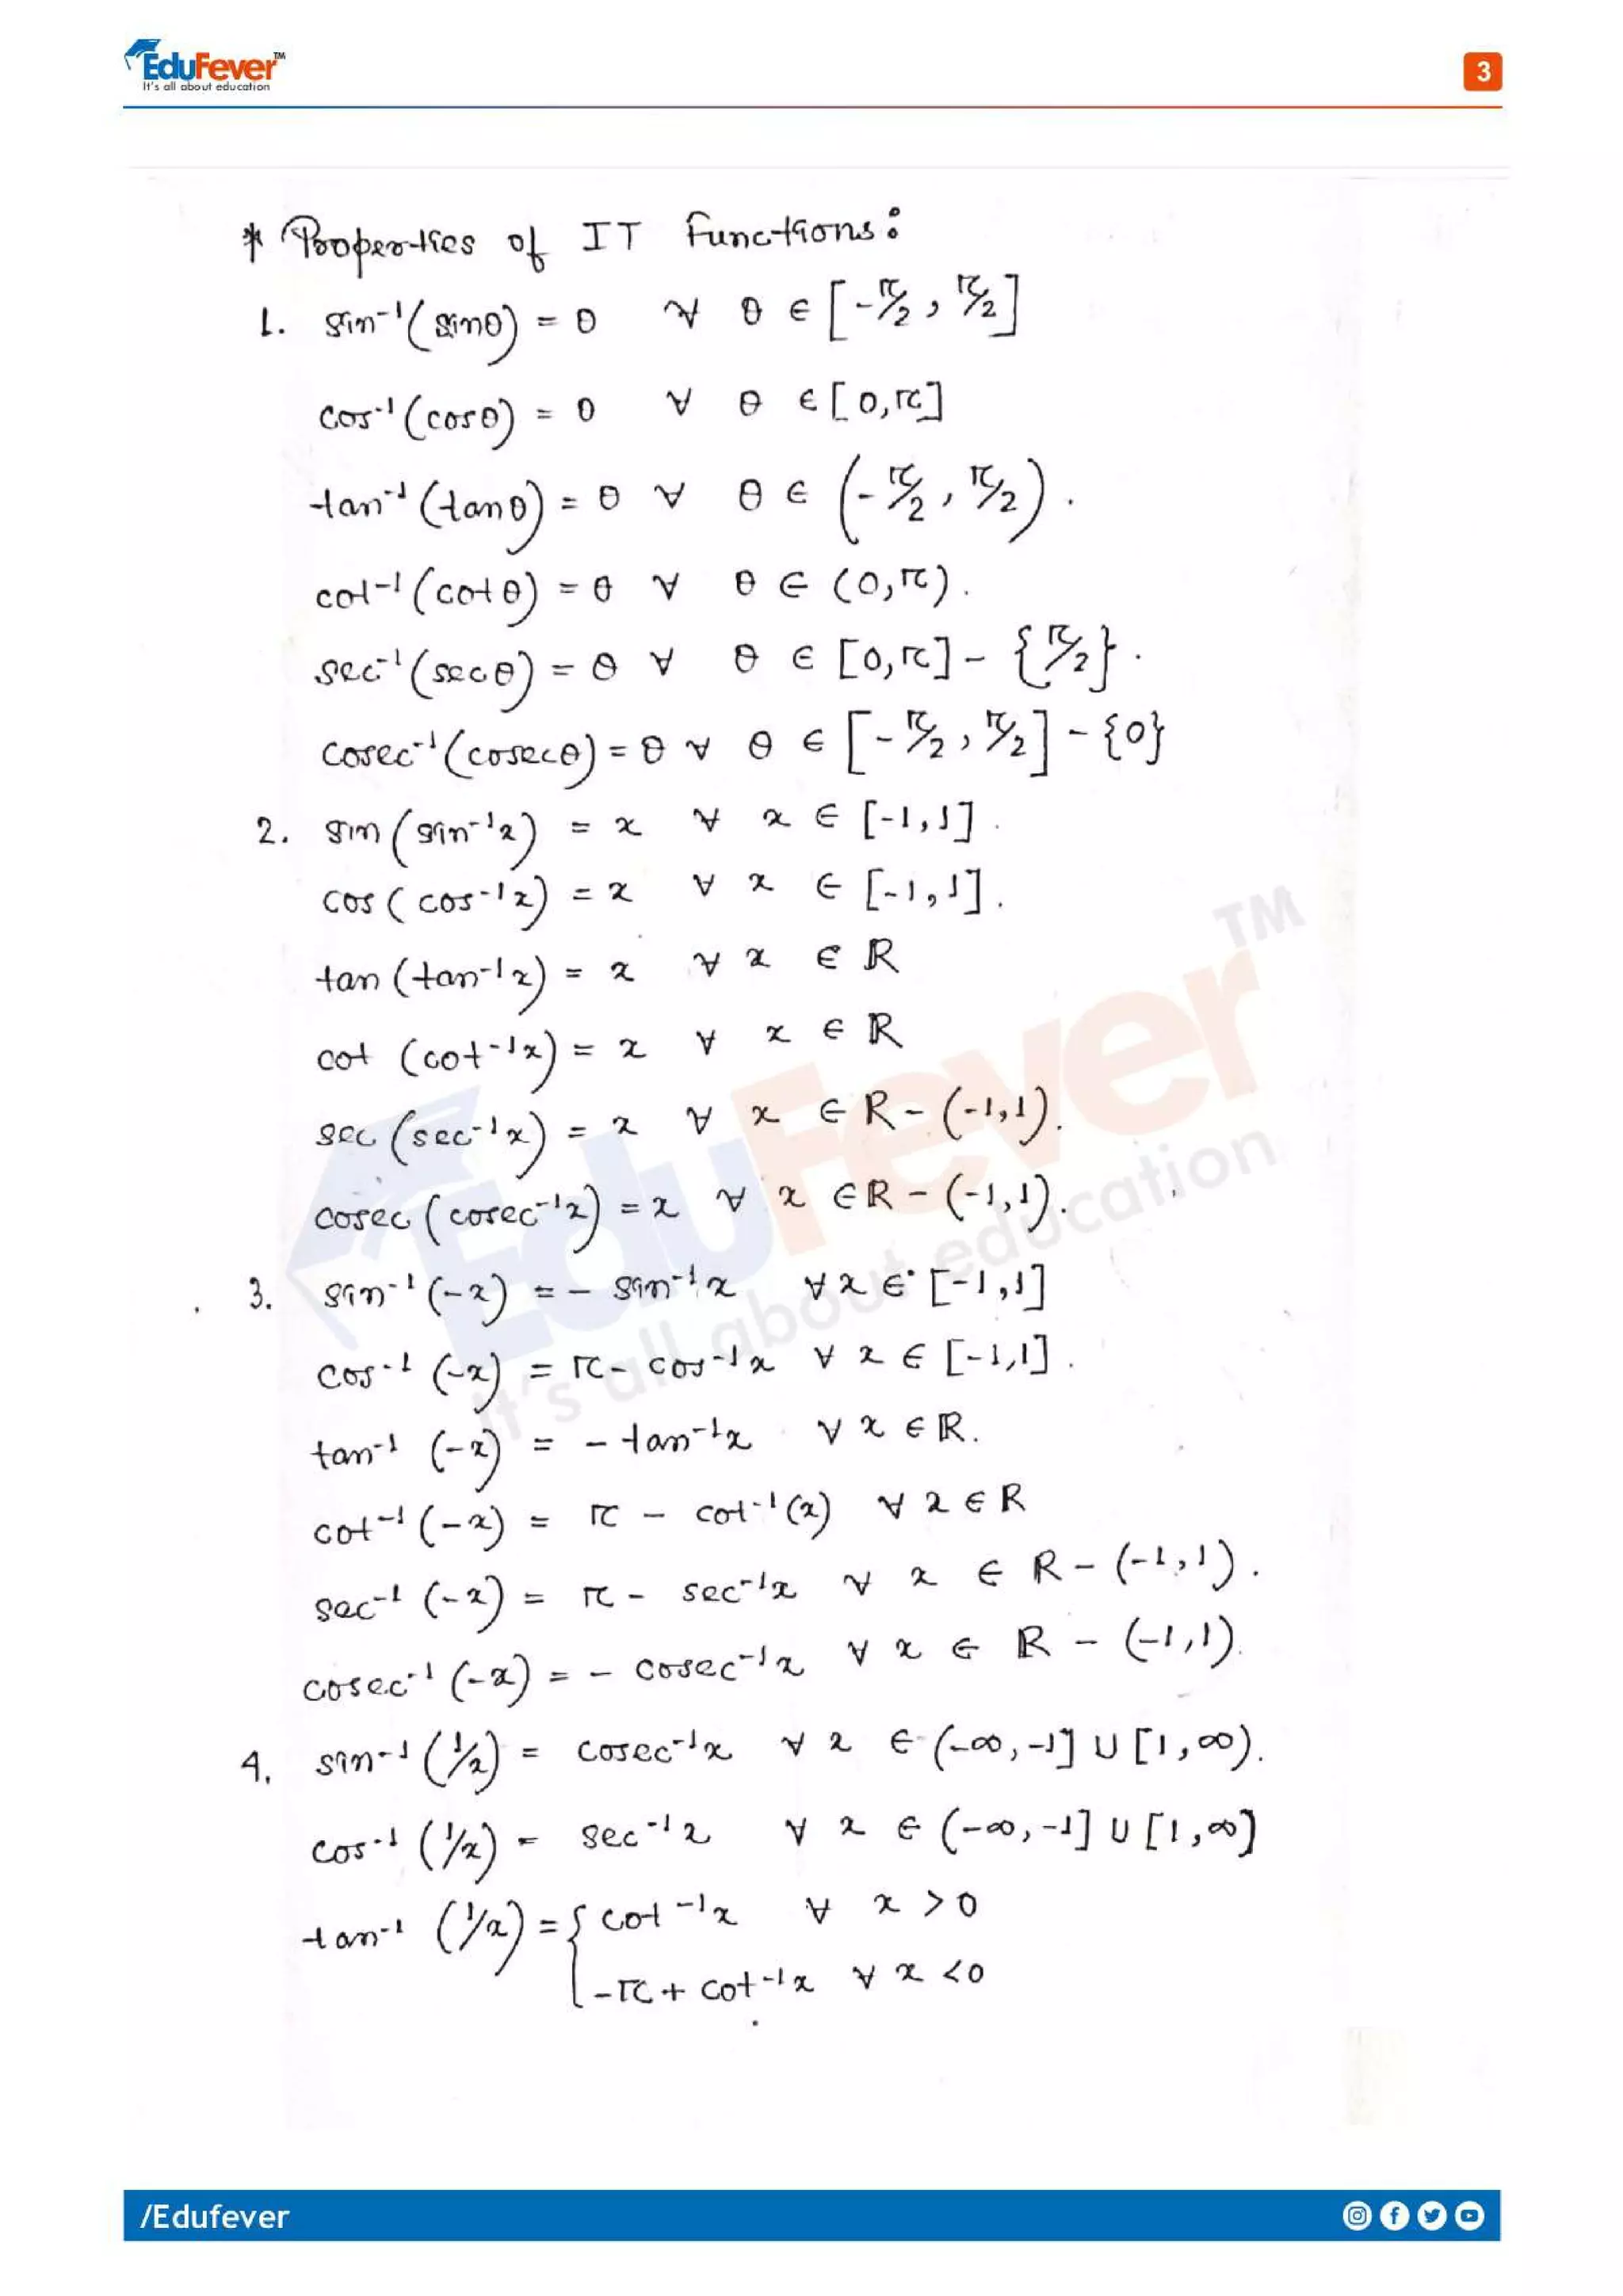 EduFever™
It's all about education
3
* Properties of IT Functions:
1. sin⁻¹(sinθ) = θ ∀ θ ∈ [-π/2, π/2]
cos⁻¹(cosθ) = θ ∀ θ ∈ [0,π]
tan⁻¹(tanθ) = θ ∀ θ ∈ (-π/2, π/2).
cot⁻¹(cotθ) = θ ∀ θ ∈ (0,π).
sec⁻¹(secθ) = θ ∀ θ ∈ [0,π] - {π/2}.
cosec⁻¹(cosecθ) = θ ∀ θ ∈ [-π/2, π/2] - {0}
2. sin(sin⁻¹x) = x ∀ x ∈ [-1,1].
cos(cos⁻¹x) = x ∀ x ∈ [-1,1].
tan(tan⁻¹x) = x ∀ x ∈ R
cot (cot⁻¹x) = x ∀ x ∈ R
sec(sec⁻¹x) = x ∀ x ∈ R - (-1,1).
cosec(cosec⁻¹x) = x ∀ x ∈ R - (-1,1).
3. sin⁻¹(-x) = - sin⁻¹x ∀ x ∈ [-1,1]
cos⁻¹(-x) = π - cos⁻¹x ∀ x ∈ [-1,1].
tan⁻¹(-x) = - tan⁻¹x ∀ x ∈ R.
cot⁻¹(-x) = π - cot⁻¹(x) ∀ x ∈ R
sec⁻¹(-x) = π - sec⁻¹x ∀ x ∈ R - (-1,1).
cosec⁻¹(-x) = - cosec⁻¹x ∀ x ∈ R - (-1,1).
4. sin⁻¹(1/x) = cosec⁻¹x ∀ x ∈ (-∞,-1] ∪ [1,∞).
cos⁻¹(1/x) = sec⁻¹x ∀ x ∈ (-∞,-1] ∪ [1,∞]
tan⁻¹(1/x) = { cot⁻¹x ∀ x > 0
-π + cot⁻¹x ∀ x < 0
EduFever™
It's all about education
/Edufever